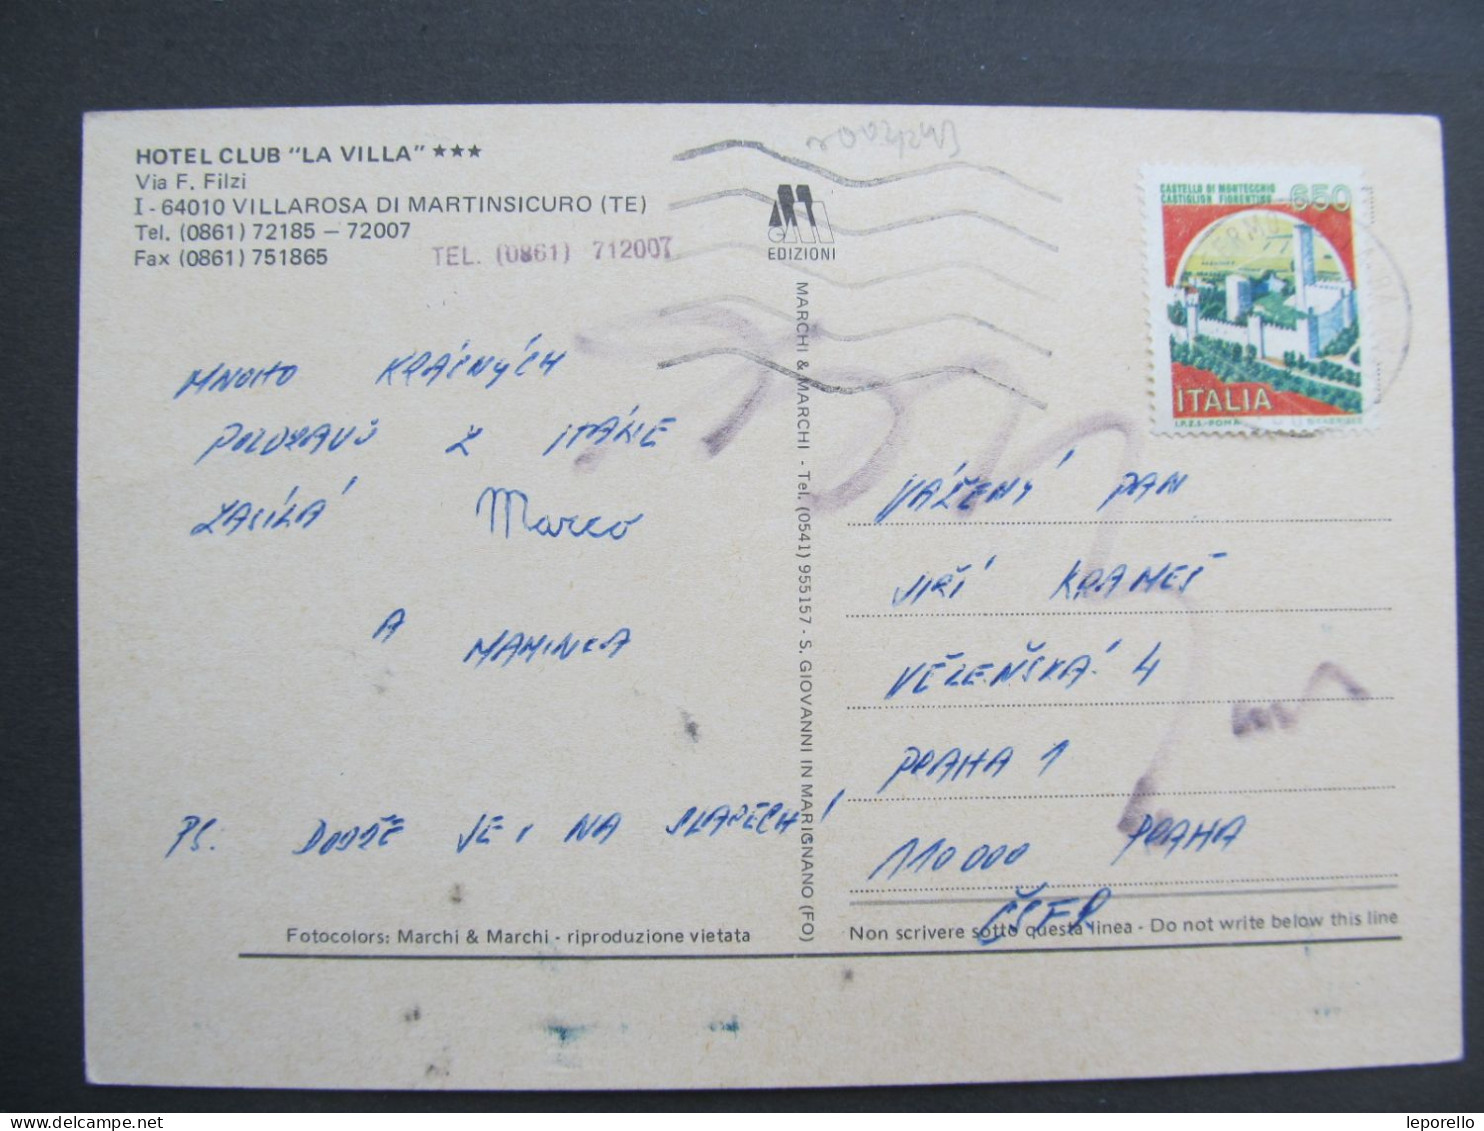 HOTEL CLUB "LA VILLA" ★★★
Via F. Filzi
I - 64010 VILLAROSA DI MARTINSICURO (TE)
Tel. (0861) 72185 – 72007
Fax (0861) 751865
TEL. (0861) 712007
EDIZIONI
CASTELLO DI MONTECCHIO
CASTIGLION FIORENTINO
650
ITALIA
I.P.Z.S.-ROMA
MARCHI & MARCHI - Tel. (0541) 955157 - S. GIOVANNI IN MARIGNANO (FO)
MNOHO KRÁSNÝCH
POZDRAVŮ Z ITÁLIE
ZASÍLÁ Marco
A MAMINKA
PS. DOBŘE JE I NA SLAPECH!
VÁŽENÝ PAN
JIŘÍ KRAMEŠ
VĚZEŇSKÁ 4
PRAHA 1
110 000 PRAHA
ČSFR
Fotocolors: Marchi & Marchi - riproduzione vietata
Non scrivere sotto questa linea - Do not write below this line
leporello